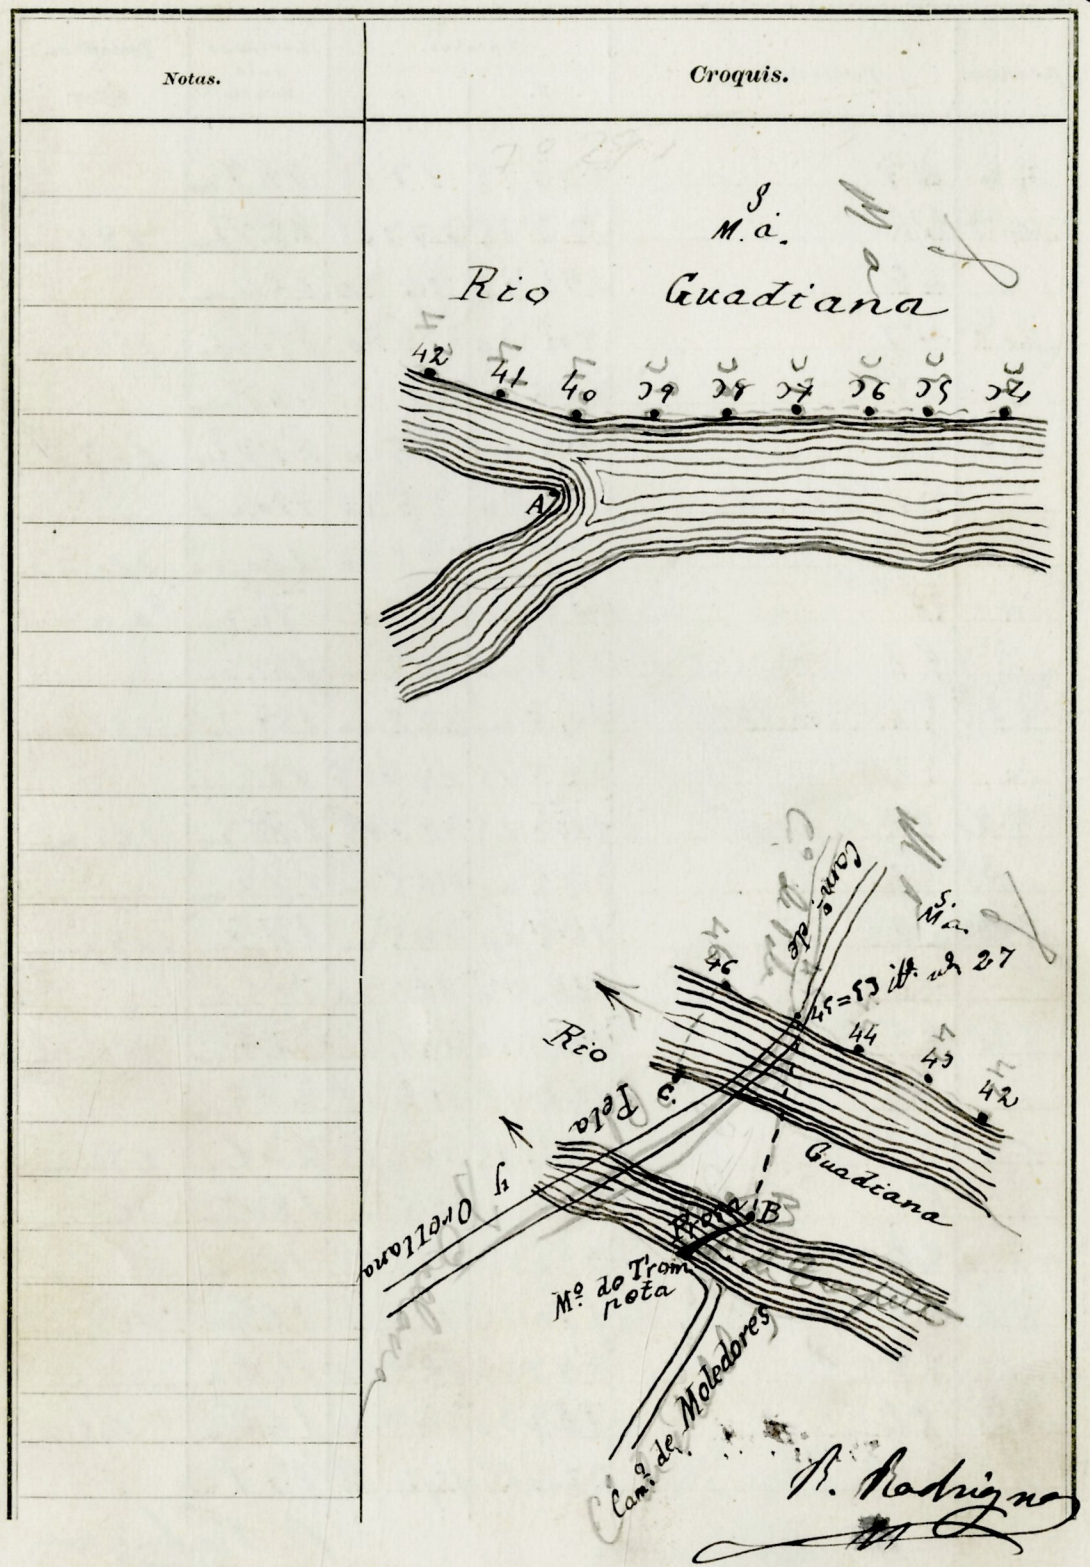 Notas.
Croquis.
S.
M. a.
Rio Guadiana
42 41 40 39 38 37 36 35 34
A
Camº de
S.
Ma.
46
45=53 itº
27
44
43
42
Rio
C
Guadiana
Orellana y Pela
Presa
B
Mº de Trom
peta
Camº de Moledores
R. Rodriguez